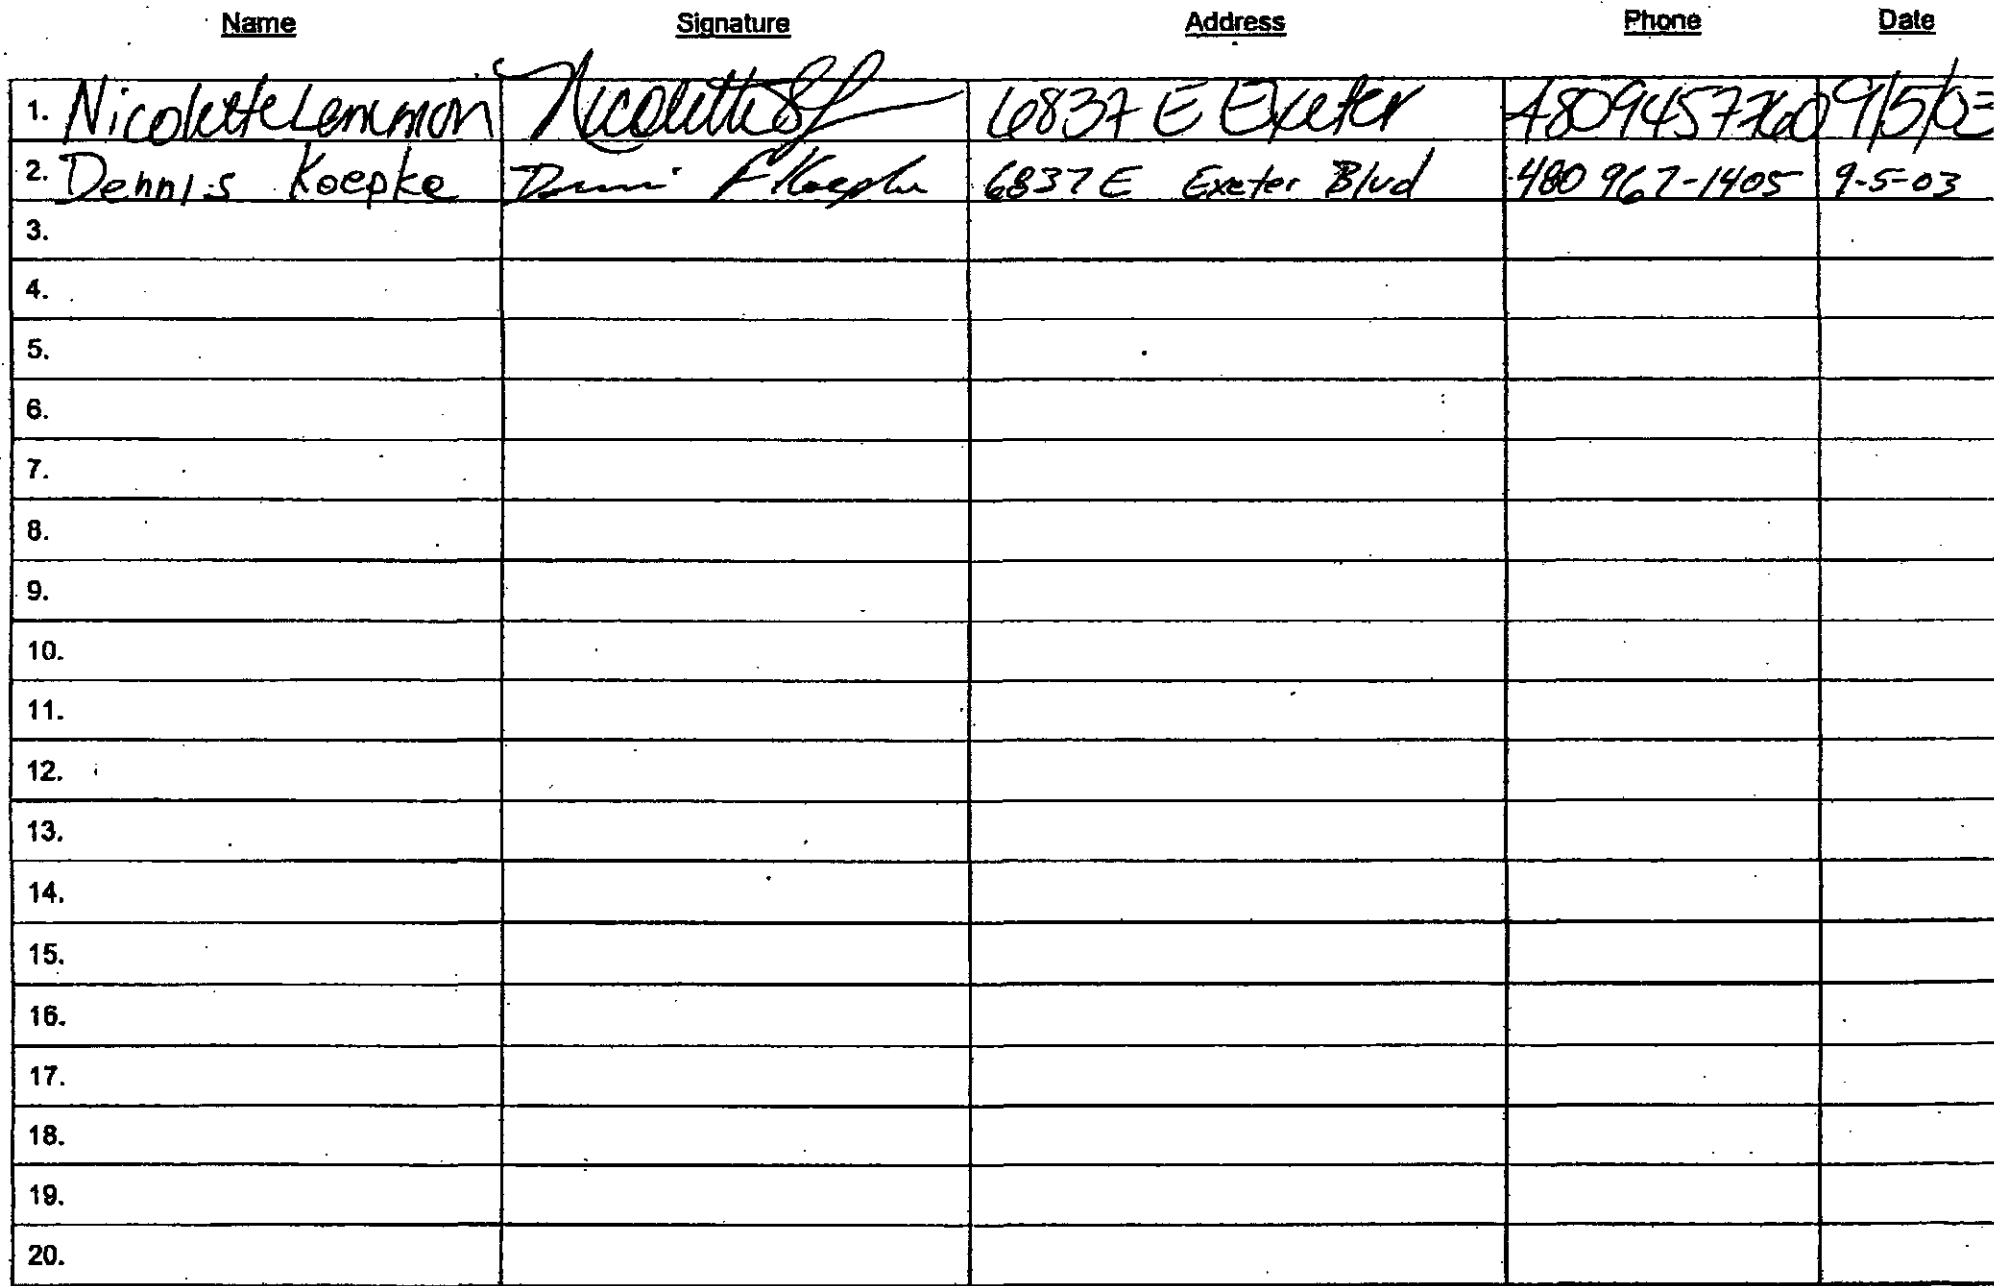 Name Signature Address Phone Date
1. Nicolette Lemmon Nicolette 6837 E Exeter 4809457760 9/5/03
2. Dennis Koepke Dennis F Koepke 6837 E Exeter Blvd 480 967-1405 9-5-03
3.
4.
5.
6.
7.
8.
9.
10.
11.
12.
13.
14.
15.
16.
17.
18.
19.
20.